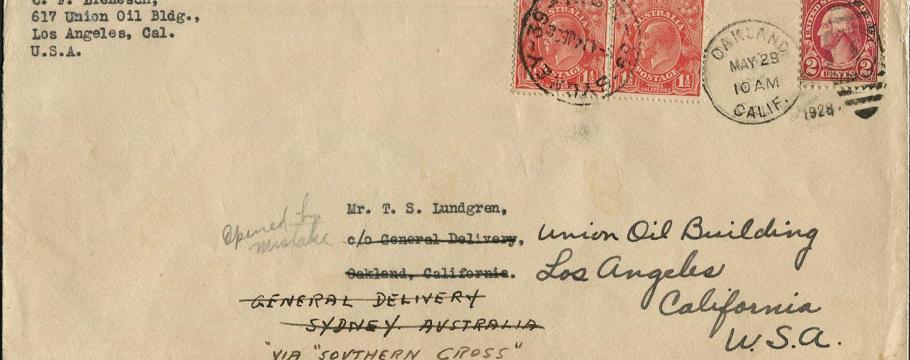 617 Union Oil Bldg.,
Los Angeles, Cal.
U.S.A.
AUSTRALIA
POSTAGE
AUSTRALIA
POSTAGE
THREE HALFPENCE
SYDNEY
OAKLAND
MAY 29
10 AM
CALIF.
1928
2 CENTS 2
Opened by
mistake
Mr. T. S. Lundgren,
c/o General Delivery,
Oakland, California.
Union Oil Building
Los Angeles
California
U.S.A.
GENERAL DELIVERY
SYDNEY AUSTRALIA
"VIA "SOUTHERN CROSS"